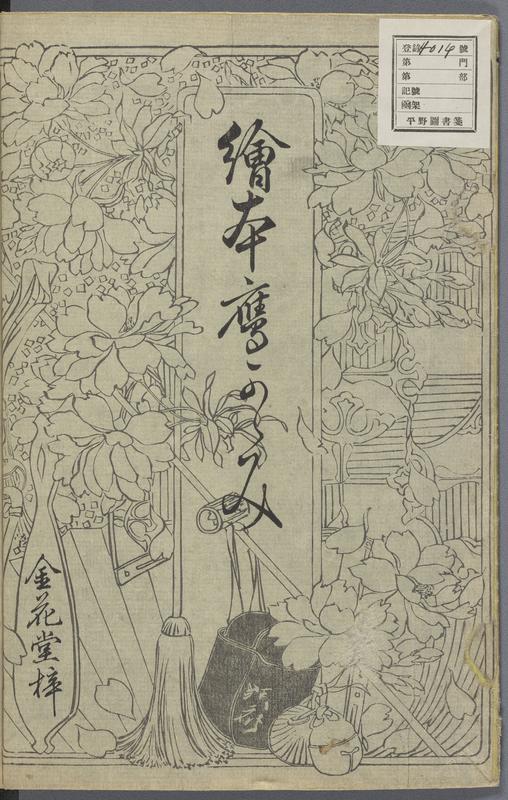 登録4014號
第 門
第 部
記號
圖架
平野圖書箋
繪本鷹かゝみ
金花堂梓